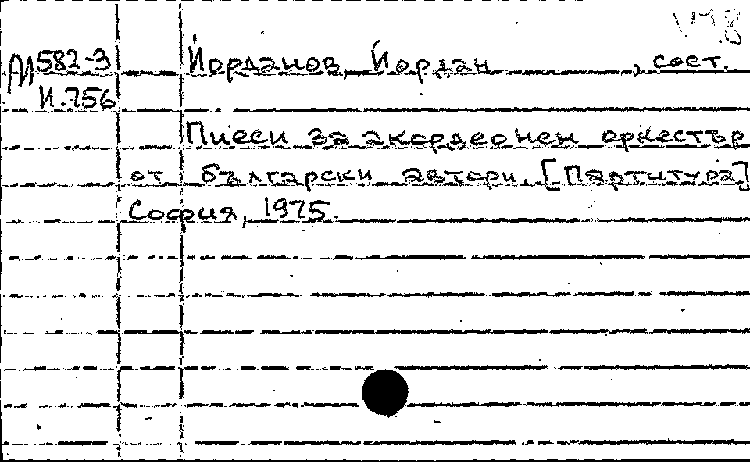 VM.8
М582-3 Йорданов, Йордан, сост.
И.756
Пиеси за акордеонен оркестър
от български автори. [Партитура]
София, 1975.